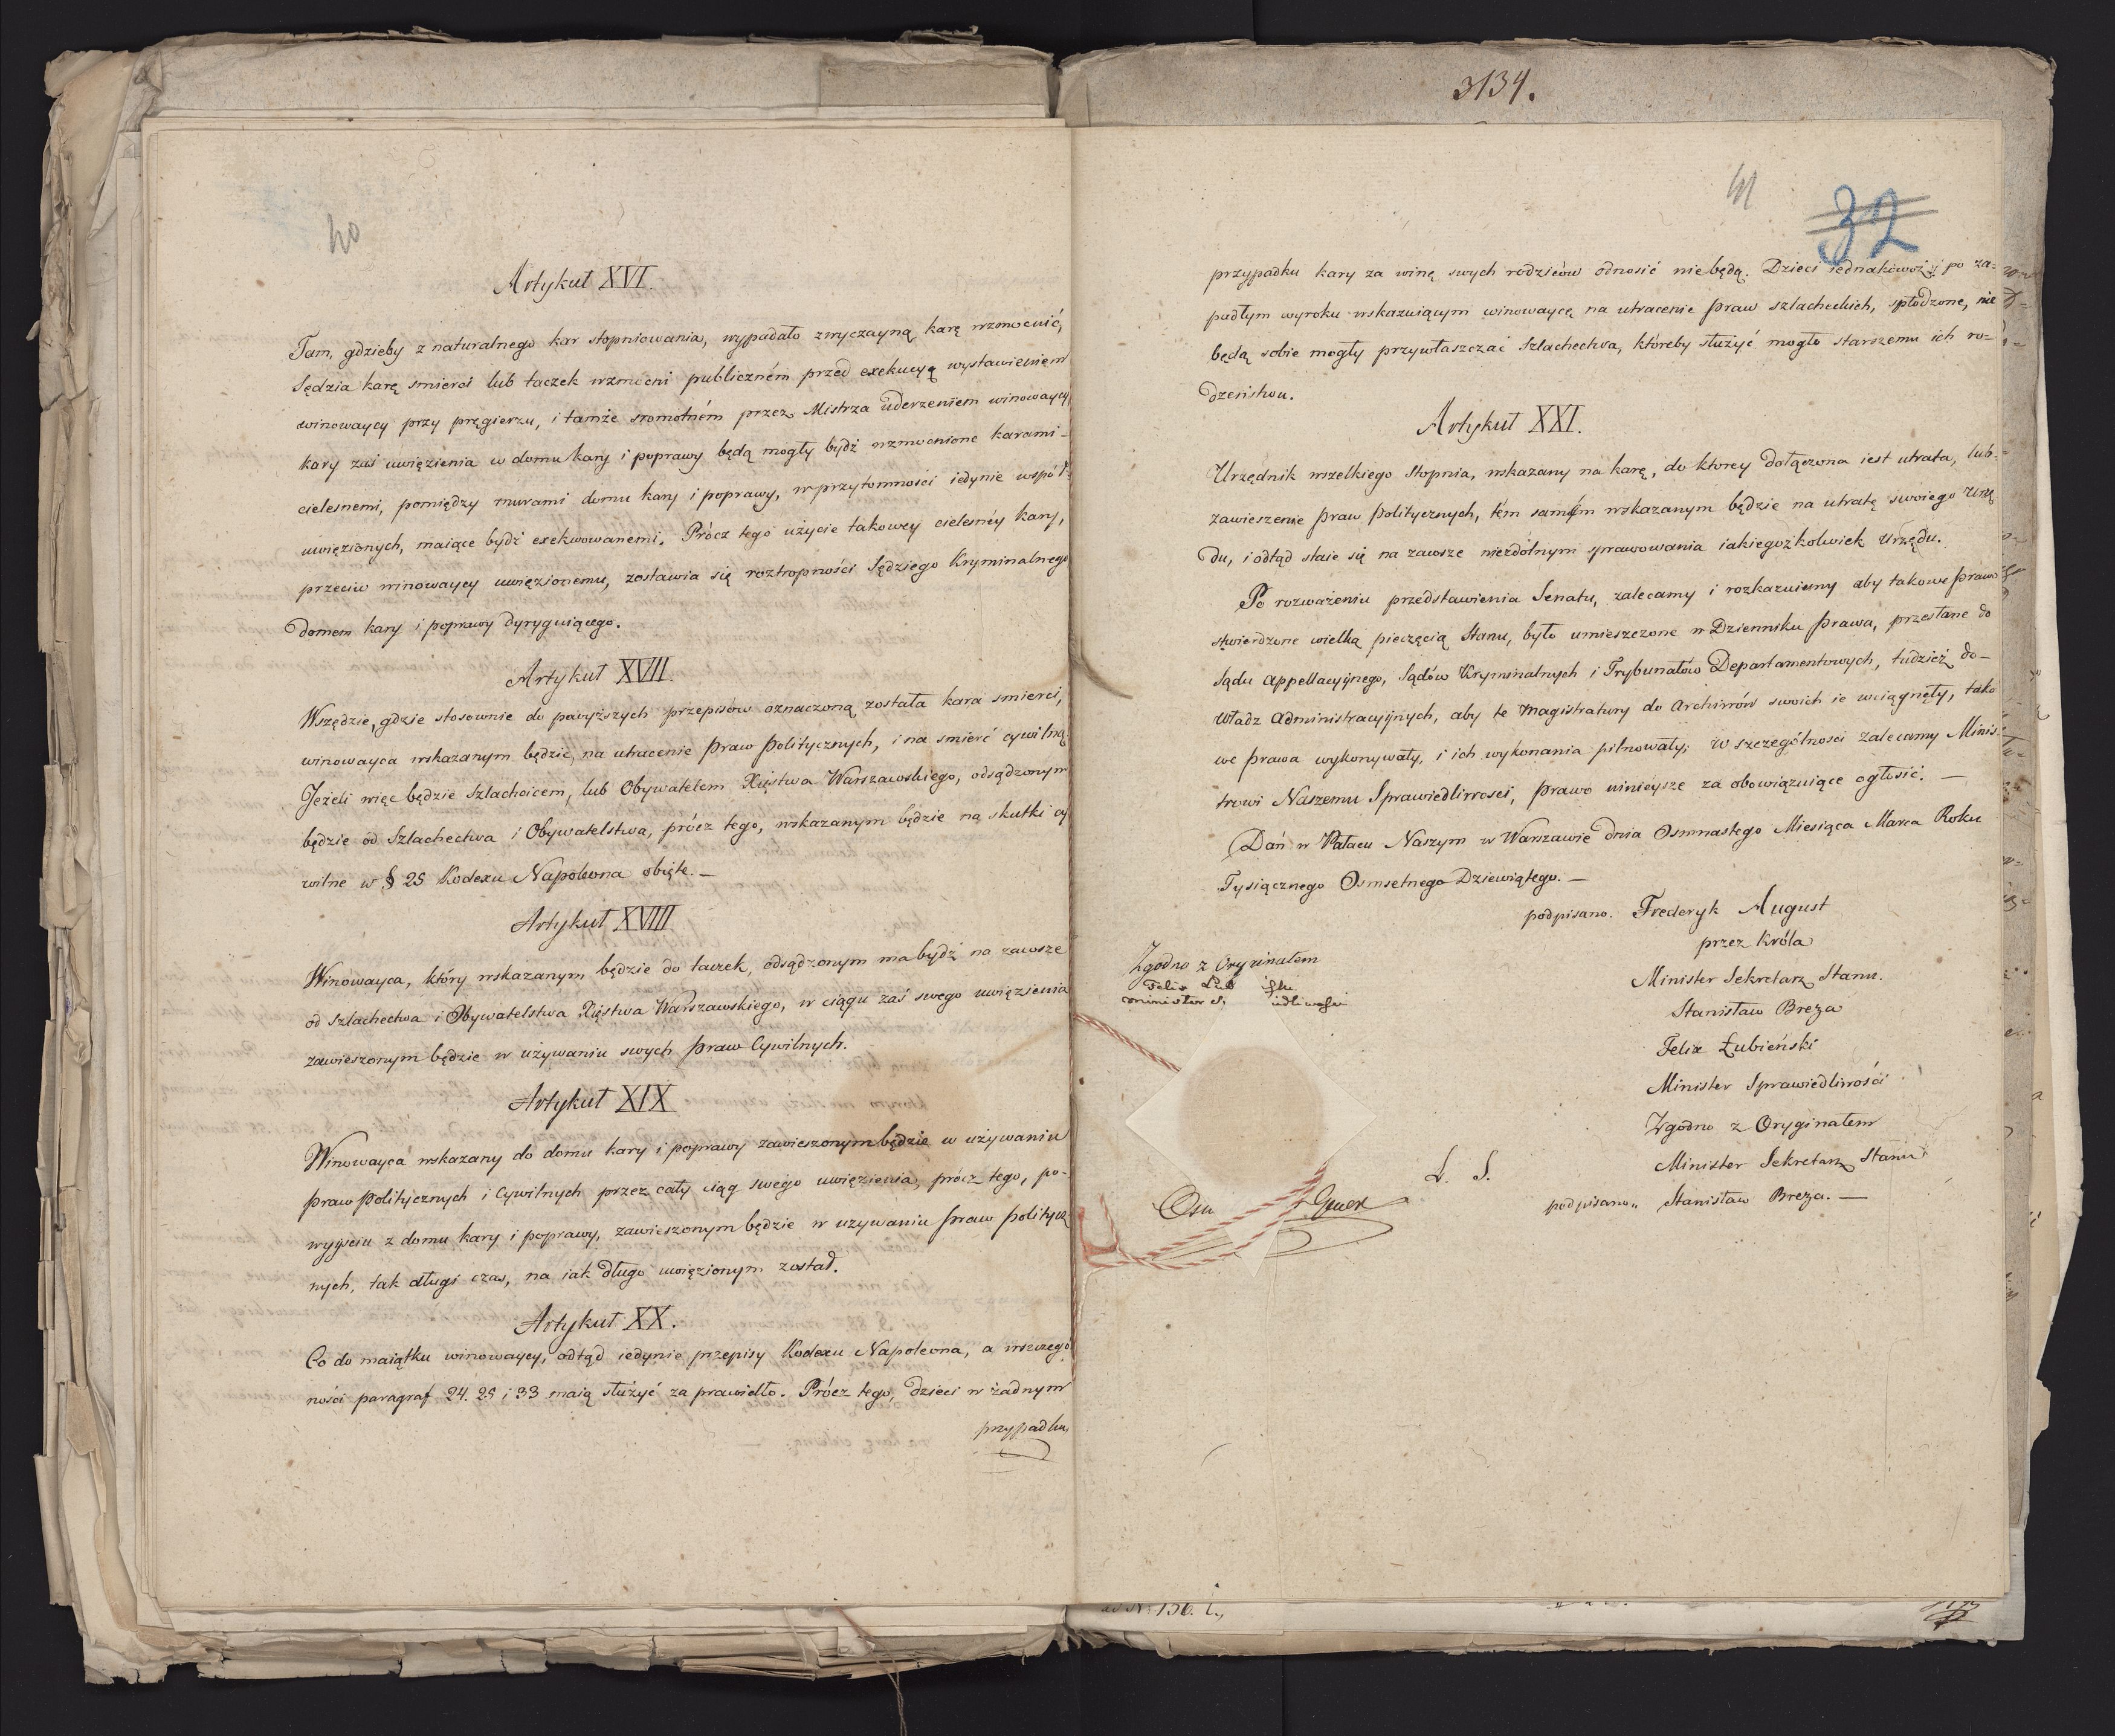 40
Artykuł XVI.
Tam, gdzieby z naturalnego kar stopniowania, wypadało zwyczayną karę wzmocnić,
Sędzia karę smierci lub taczek wzmocni publiczném przed exekucyą wystawieniem
winowaycy przy pręgierzu, i tamże sromotném przez Mistrza uderzeniem winowaycy,
kary zaś uwięzienia w domu kary i poprawy będą mogły bydź wzmocnione karami-
cielesnemi, pomiędzy murami domu kary i poprawy, w przytomności iedynie współ-
uwięzionych, maiące bydź exekwowanemi. Prócz tego użycie takowey cielesnéy kary,
przeciw winowaycy uwięzionemu, zostawia się roztropności Sędziego Kryminalnego
domem kary i poprawy dyryguiącego.
Artykuł XVII.
Wszędzie, gdzie stosownie do powyższych przepisów oznaczoną została kara smierci,
winowayca wskazanym będzie, na utracenie praw politycznych, i na smierć cywilną.
Jeżeli więc będzie Szlachcicem, lub Obywatelem Xięstwa Warszawskiego, odsądzonym
będzie od Szlachectwa i Obywatelstwa, prócz tego, wskazanym będzie na skutki cy
wilne w § 25 Kodexu Napoleona obięte. —
Artykuł XVIII
Winowayca, który wskazanym będzie do taczek, odsądzonym ma bydź na zawsze
od Szlachectwa i Obywatelstwa Xięstwa Warszawskiego, w ciągu zaś swego uwięzienia
zawieszonym będzie w używaniu swych praw Cywilnych.
Artykuł XIX
Winowayca wskazany do domu kary i poprawy zawieszonym będzie w używaniu
praw politycznych i Cywilnych przez cały ciąg swego uwięzienia, prócz tego, po-
wyyściu z domu kary i poprawy, zawieszonym będzie w używaniu praw polityc
nych, tak długi czas, na iak długo uwięzionym został.
Artykuł XX.
Co do maiątku winowaycy, odtąd iedynie przepisy Kodexu Napoleona, a wszczegó
ności paragraf 24. 25 i 33 maią służyć za prawidło. Prócz tego, dzieci w żadnym
przypadku,
3134.
41
32
przypadku kary za winę swych rodziców odnosić niebędą. Dzieci iednakowoż po za-
padłym wyroku wskazuiącym winowaycę na utracenie praw szlacheckich, spłodzone, nie
będą sobie mogły przywłaszczać Szlachectwa, któreby służyć mogło starszemu ich ro-
dzeństwu.
Artykuł XXI.
Urzędnik wszelkiego Stopnia, wskazany na karę, do ktorey dołączona iest utrata, lub-
zawieszenie praw politycznych, tém samém wskazanym będzie na utratę swoiego Urzę
du, i odtąd staie się na zawsze niezdolnym sprawowania iakiegożkolwiek Urzędu.
Po rozważeniu przedstawienia Senatu, zalecamy i rozkazuiemy aby takowe prawo
stwierdzone wielką pieczęcią Stanu, było umieszczone w Dzienniku prawa, przesłane do
Sądu Appellacyinego, Sądów Kryminalnych i Trybunałów Departamentowych, tudzież do-
Władz Administracyinych, aby te Magistratury do Archiwów swoich ie wciągnęły, tako
we prawa wykonywały, i ich wykonania pilnowały; w szczególnosci zalecamy Minis-
trowi Naszemu Sprawiedliwosci, prawo ninieysze za obowiązuiące ogłosić. —
Dań w Pałacu Naszym w Warszawie dnia Osmnastego Miesiąca Marca Roku
Tysiącznego Osmsetnego Dziewiątego. —
podpisano. Frederyk August
przez króla
Minister Sekretarz Stanu.
Stanisław Breza
Felix Łubieński
Minister Sprawiedliwości
Zgodno z Oryginałem
Minister Sekretarz Stanu
podpisano„ Stanisław Breza. —
Zgodno z Oryginałem
Felix
minister
L. S.
136.